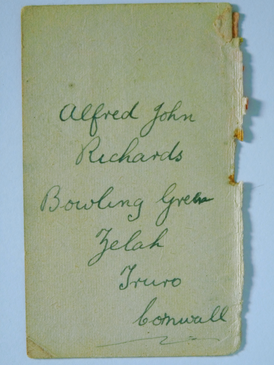 Alfred John
Richards
Bowling Green
Zelah
Truro
Cornwall